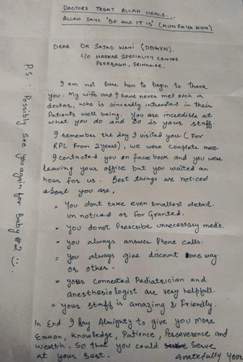 DOCTORS TREAT ALLAH HEALS..
ALLAH SAYS "BE AND IT IS" (KUN FAYA KUN)
DEAR DR SAJAD WANI
C/O HAKEEM SPECIALITY CENTRE
SRINAGAR.
I am not sure how to begin to thank
you. My wife and I have never met such a
doctor, who is sincerely interested in their
Patients well being. You are incredible at
what you do and so is your staff.
I remember the day I visited you (For
RPL From 2 years), we were complete mess
I contacted you on face book and you were
leaving your office but you waited an
hour for us. Best things we noticed
about you are,
• You dont take even smallest detail
un noticed or For Granted.
• You donot Prescribe unnecessary meds.
• You always answer Phone calls.
• You always give discount one way
or other.
• Your connected Pediatrician and
anesthesiologist are very helpfull.
• Your staff is amazing & friendly.
In End I Pray Almighty to give you more
Emaan, knowledge, Patience, Perseverence and
wealth. So that you could Serve
at your best. Gratefully your
P.S Possibly see you again for Baby #2 :)